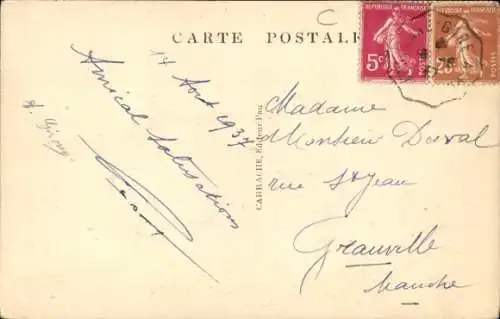 CARTE POSTALE
REPUBLIQUE FRANÇAISE
5c
POSTES
REPUBLIQUE FRANÇAISE
POSTES
14 Aout 1937
Amical Salutations
CABRACHE, Editeur Pau
Madame
Monsieur Duval
rue St Jean
Granville
Manche